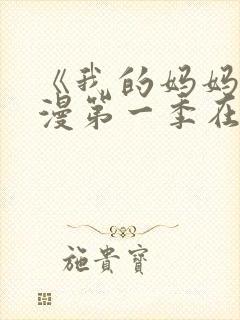 《我的妈妈
漫第一季在
施貴寶